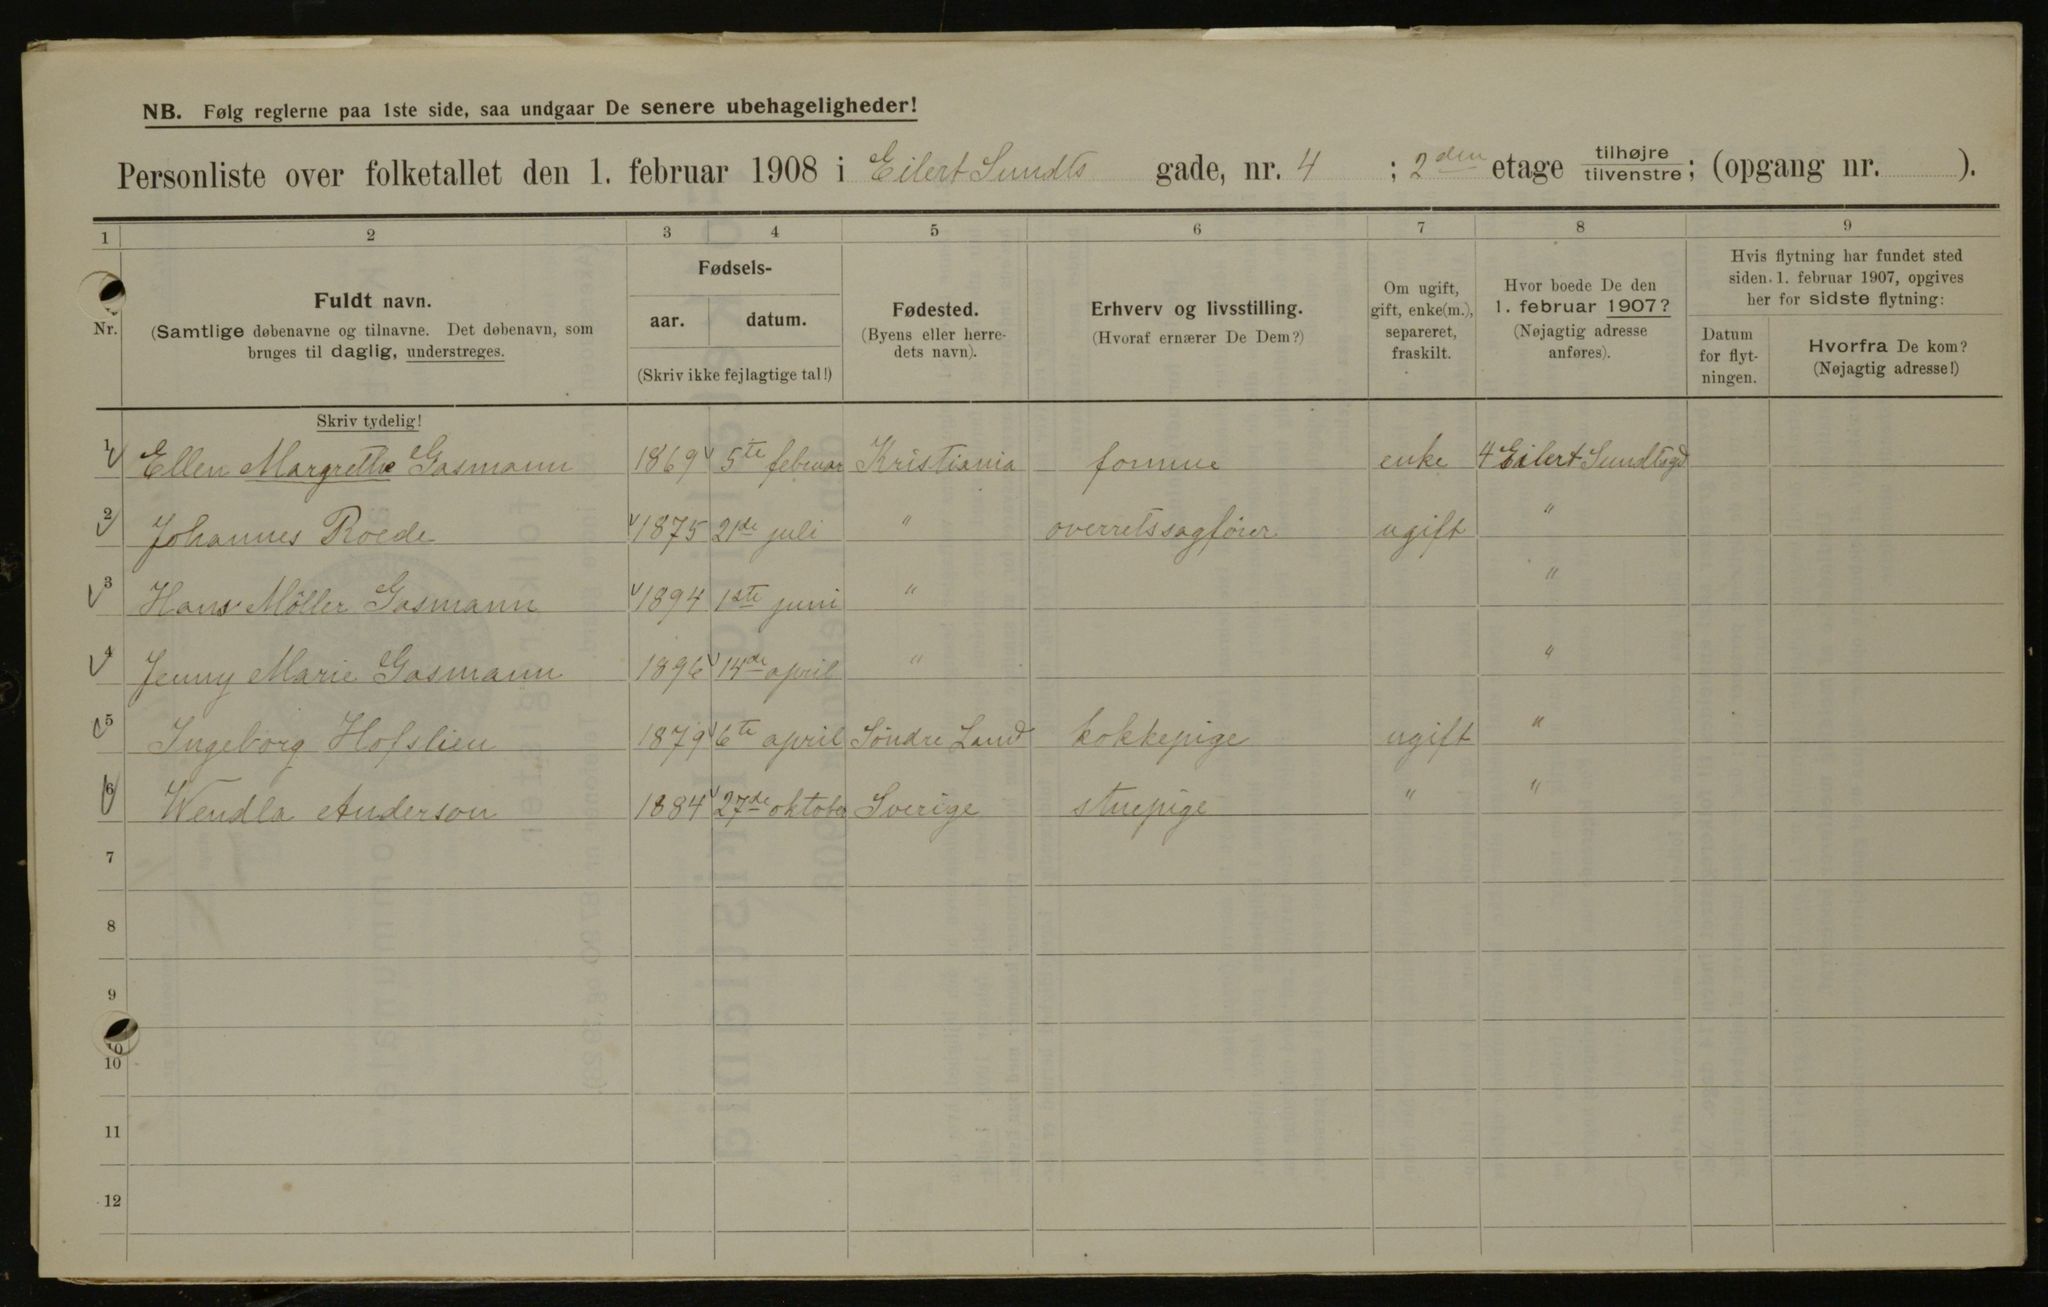 NB. Følg reglerne paa 1ste side, saa undgaar De senere ubehageligheder!
Personliste over folketallet den 1. februar 1908 i Eilert Sundts gade, nr. 4 ; 2den etage tilhøjre/tilvenstre; (opgang nr. ).
1 2 3 4 5 6 7 8 9
Nr.
Fuldt navn.
(Samtlige døbenavne og tilnavne. Det døbenavn, som
bruges til daglig, understreges.
Skriv tydelig!
Fødsels-
aar. datum.
(Skriv ikke fejlagtige tal!)
Fødested.
(Byens eller herre-
dets navn).
Erhverv og livsstilling.
(Hvoraf ernærer De Dem?)
Om ugift,
gift, enke(m.),
separeret,
fraskilt.
Hvor boede De den
1. februar 1907?
(Nøjagtig adresse
anføres).
Hvis flytning har fundet sted
siden 1. februar 1907, opgives
her for sidste flytning:
Datum
for flyt-
ningen.
Hvorfra De kom?
(Nøjagtig adresse!)
1 Ellen Margrethe Gasmann 1869 5te februar Kristiania formue enke 4 Eilert Sundtsgd
2 Johannes Roede 1875 21de juli " overretssagfører ugift "
3 Hans Möller Gasmann 1894 1ste juni " "
4 Jenny Marie Gasmann 1896 14de april " "
5 Ingeborg Hofslien 1879 6te april Söndre Land kokkepige ugift "
6 Wendla Anderson 1884 27de oktober Sverige stuepige " "
7
8
9
10
10
11
12